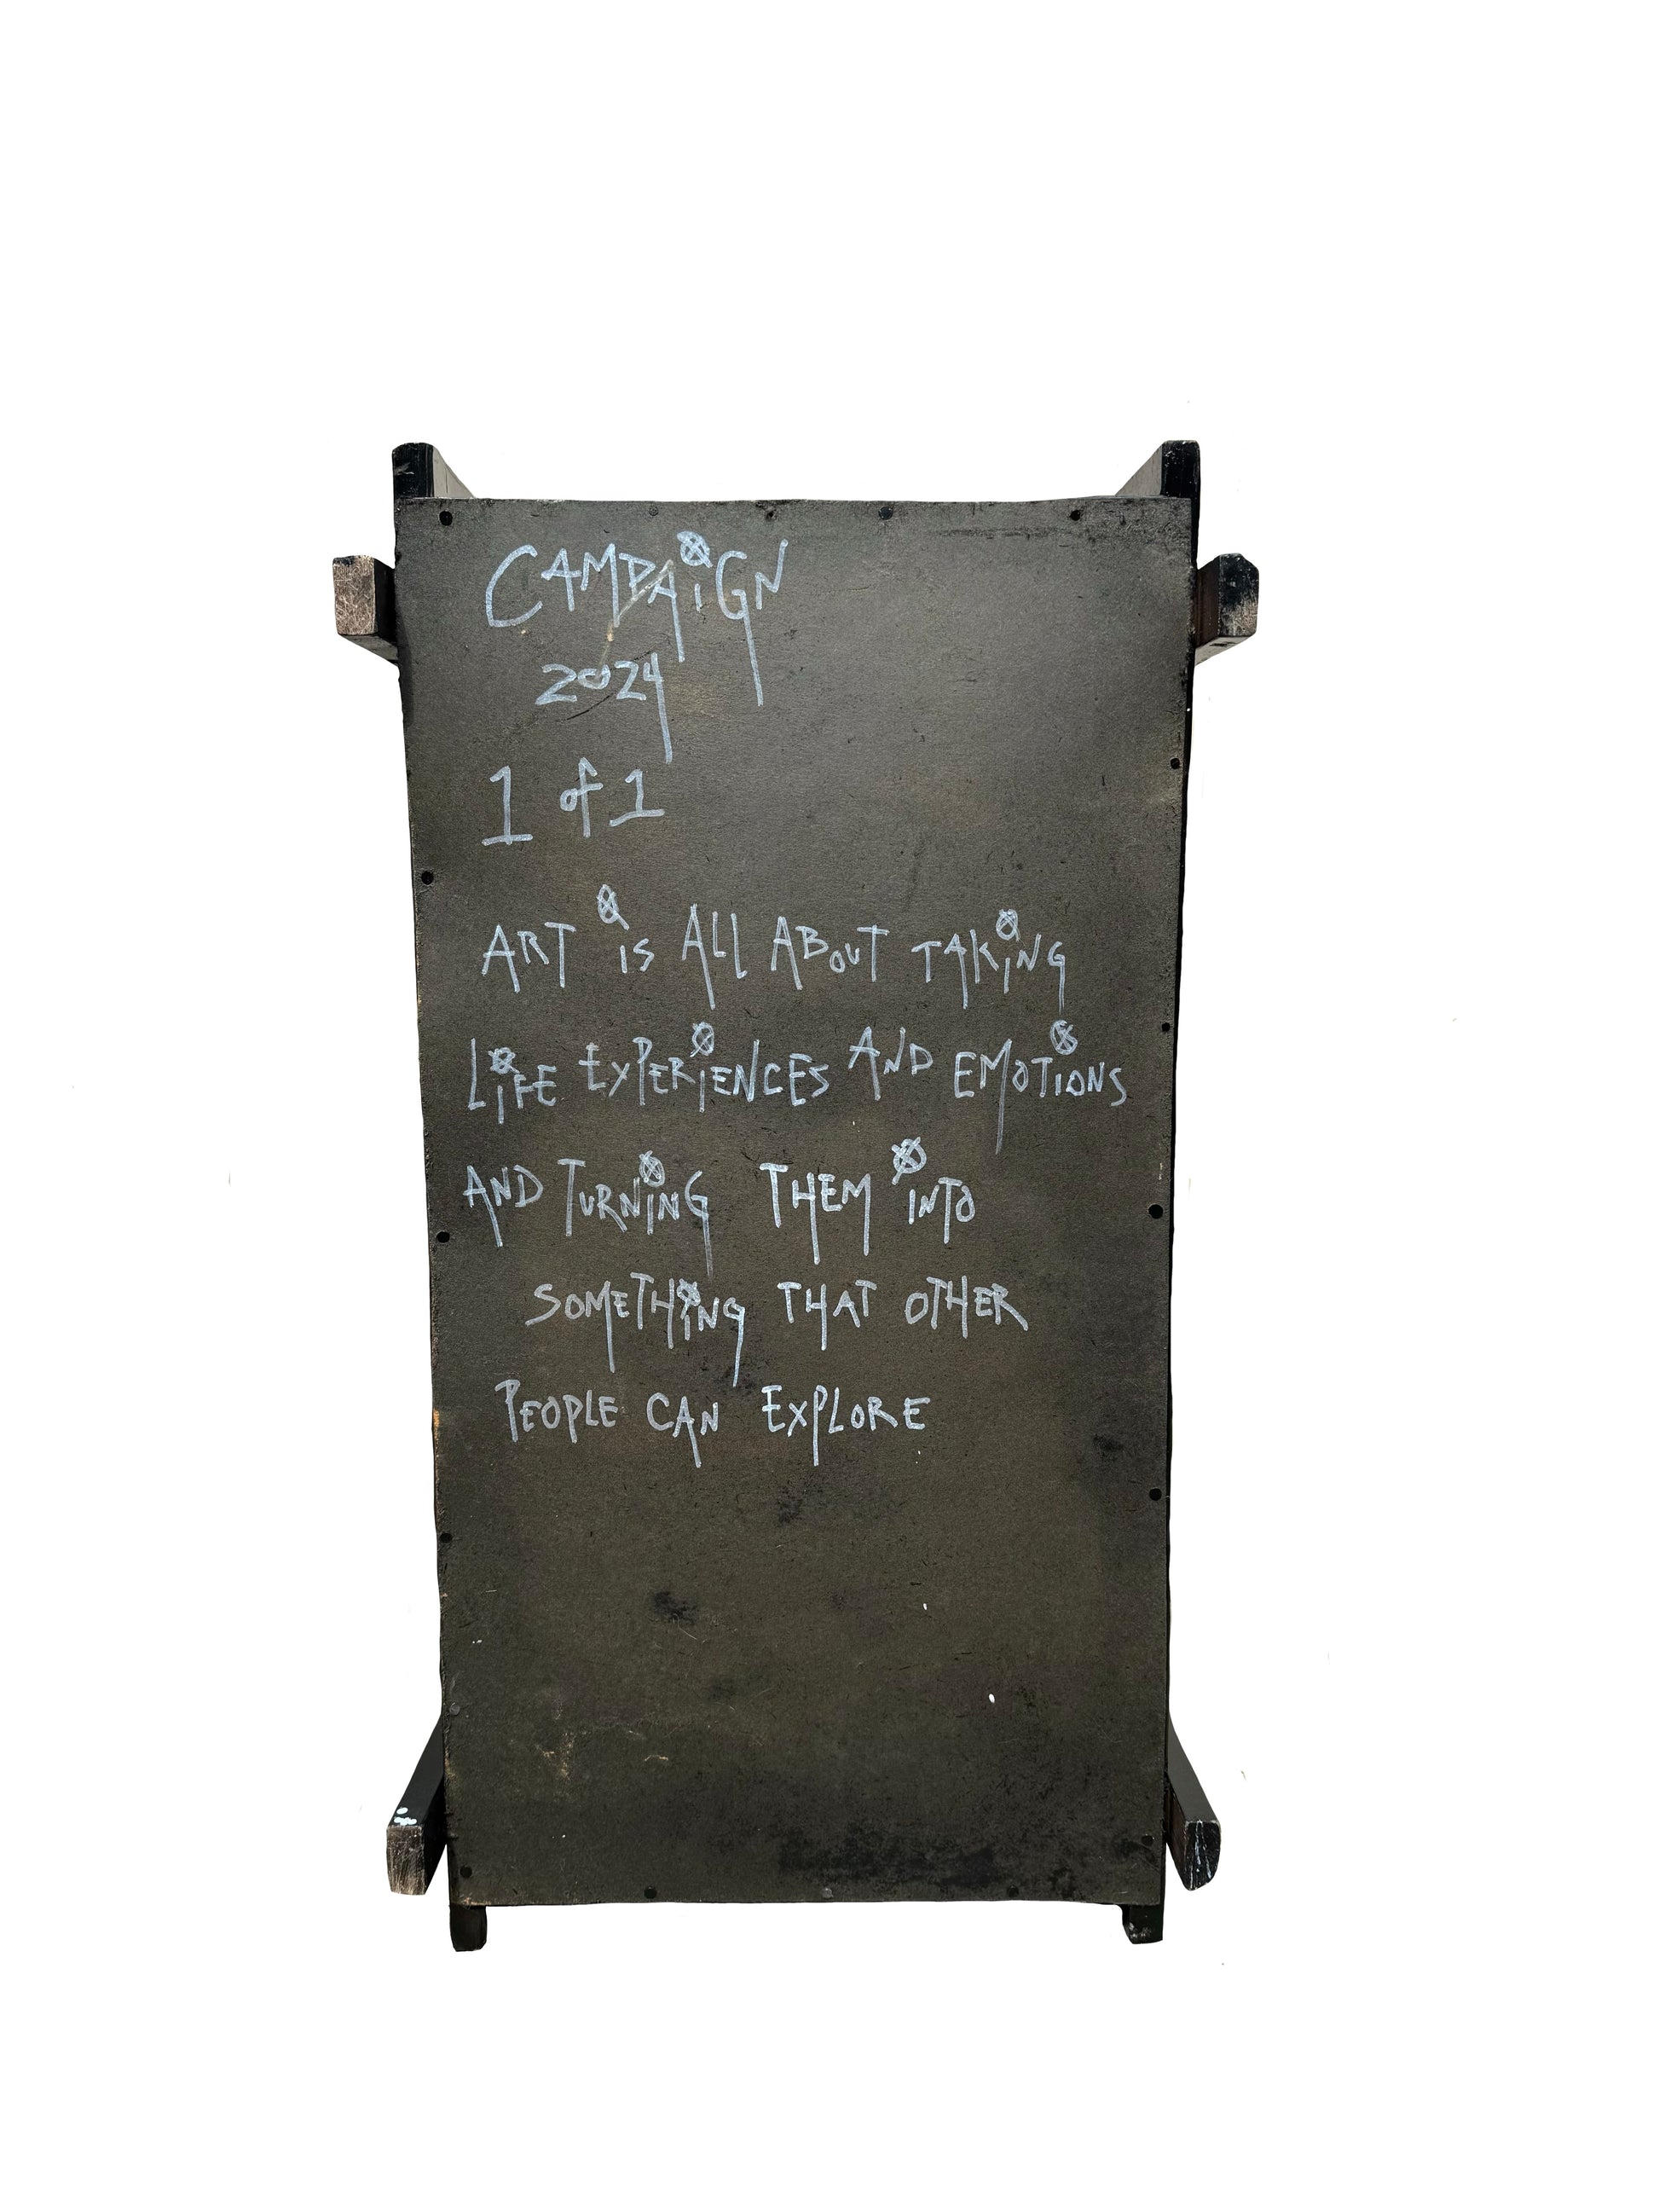 CAMPAiGN
2024
1 of 1
ART iS ALL ABOUT TAKiNG
LiFE EXPERiENCES AND EMOTiONS
AND TURNiNG THEM iNTO
SOMETHiNG THAT OTHER
PEOPLE CAN EXPLORE